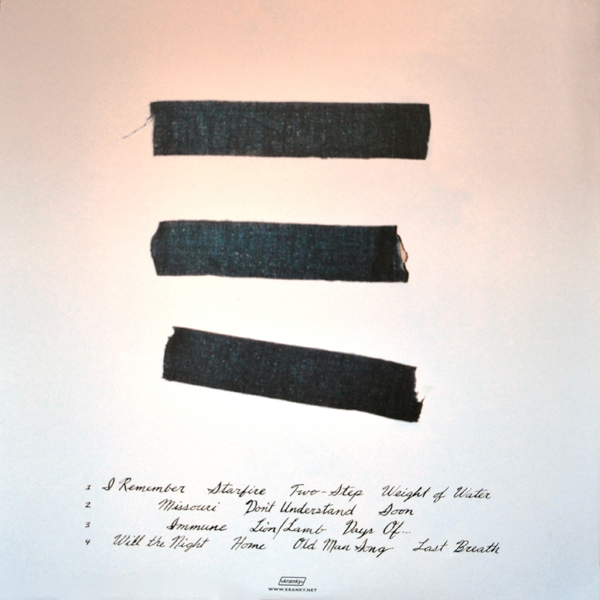 1 I Remember Starfire Two-Step Weight of Water
2 Missouri Don't Understand Soon
3 Immune Lion/Lamb Days Of...
4 Will the Night Home Old Man Song Last Breath
kranky
WWW.KRANKY.NET